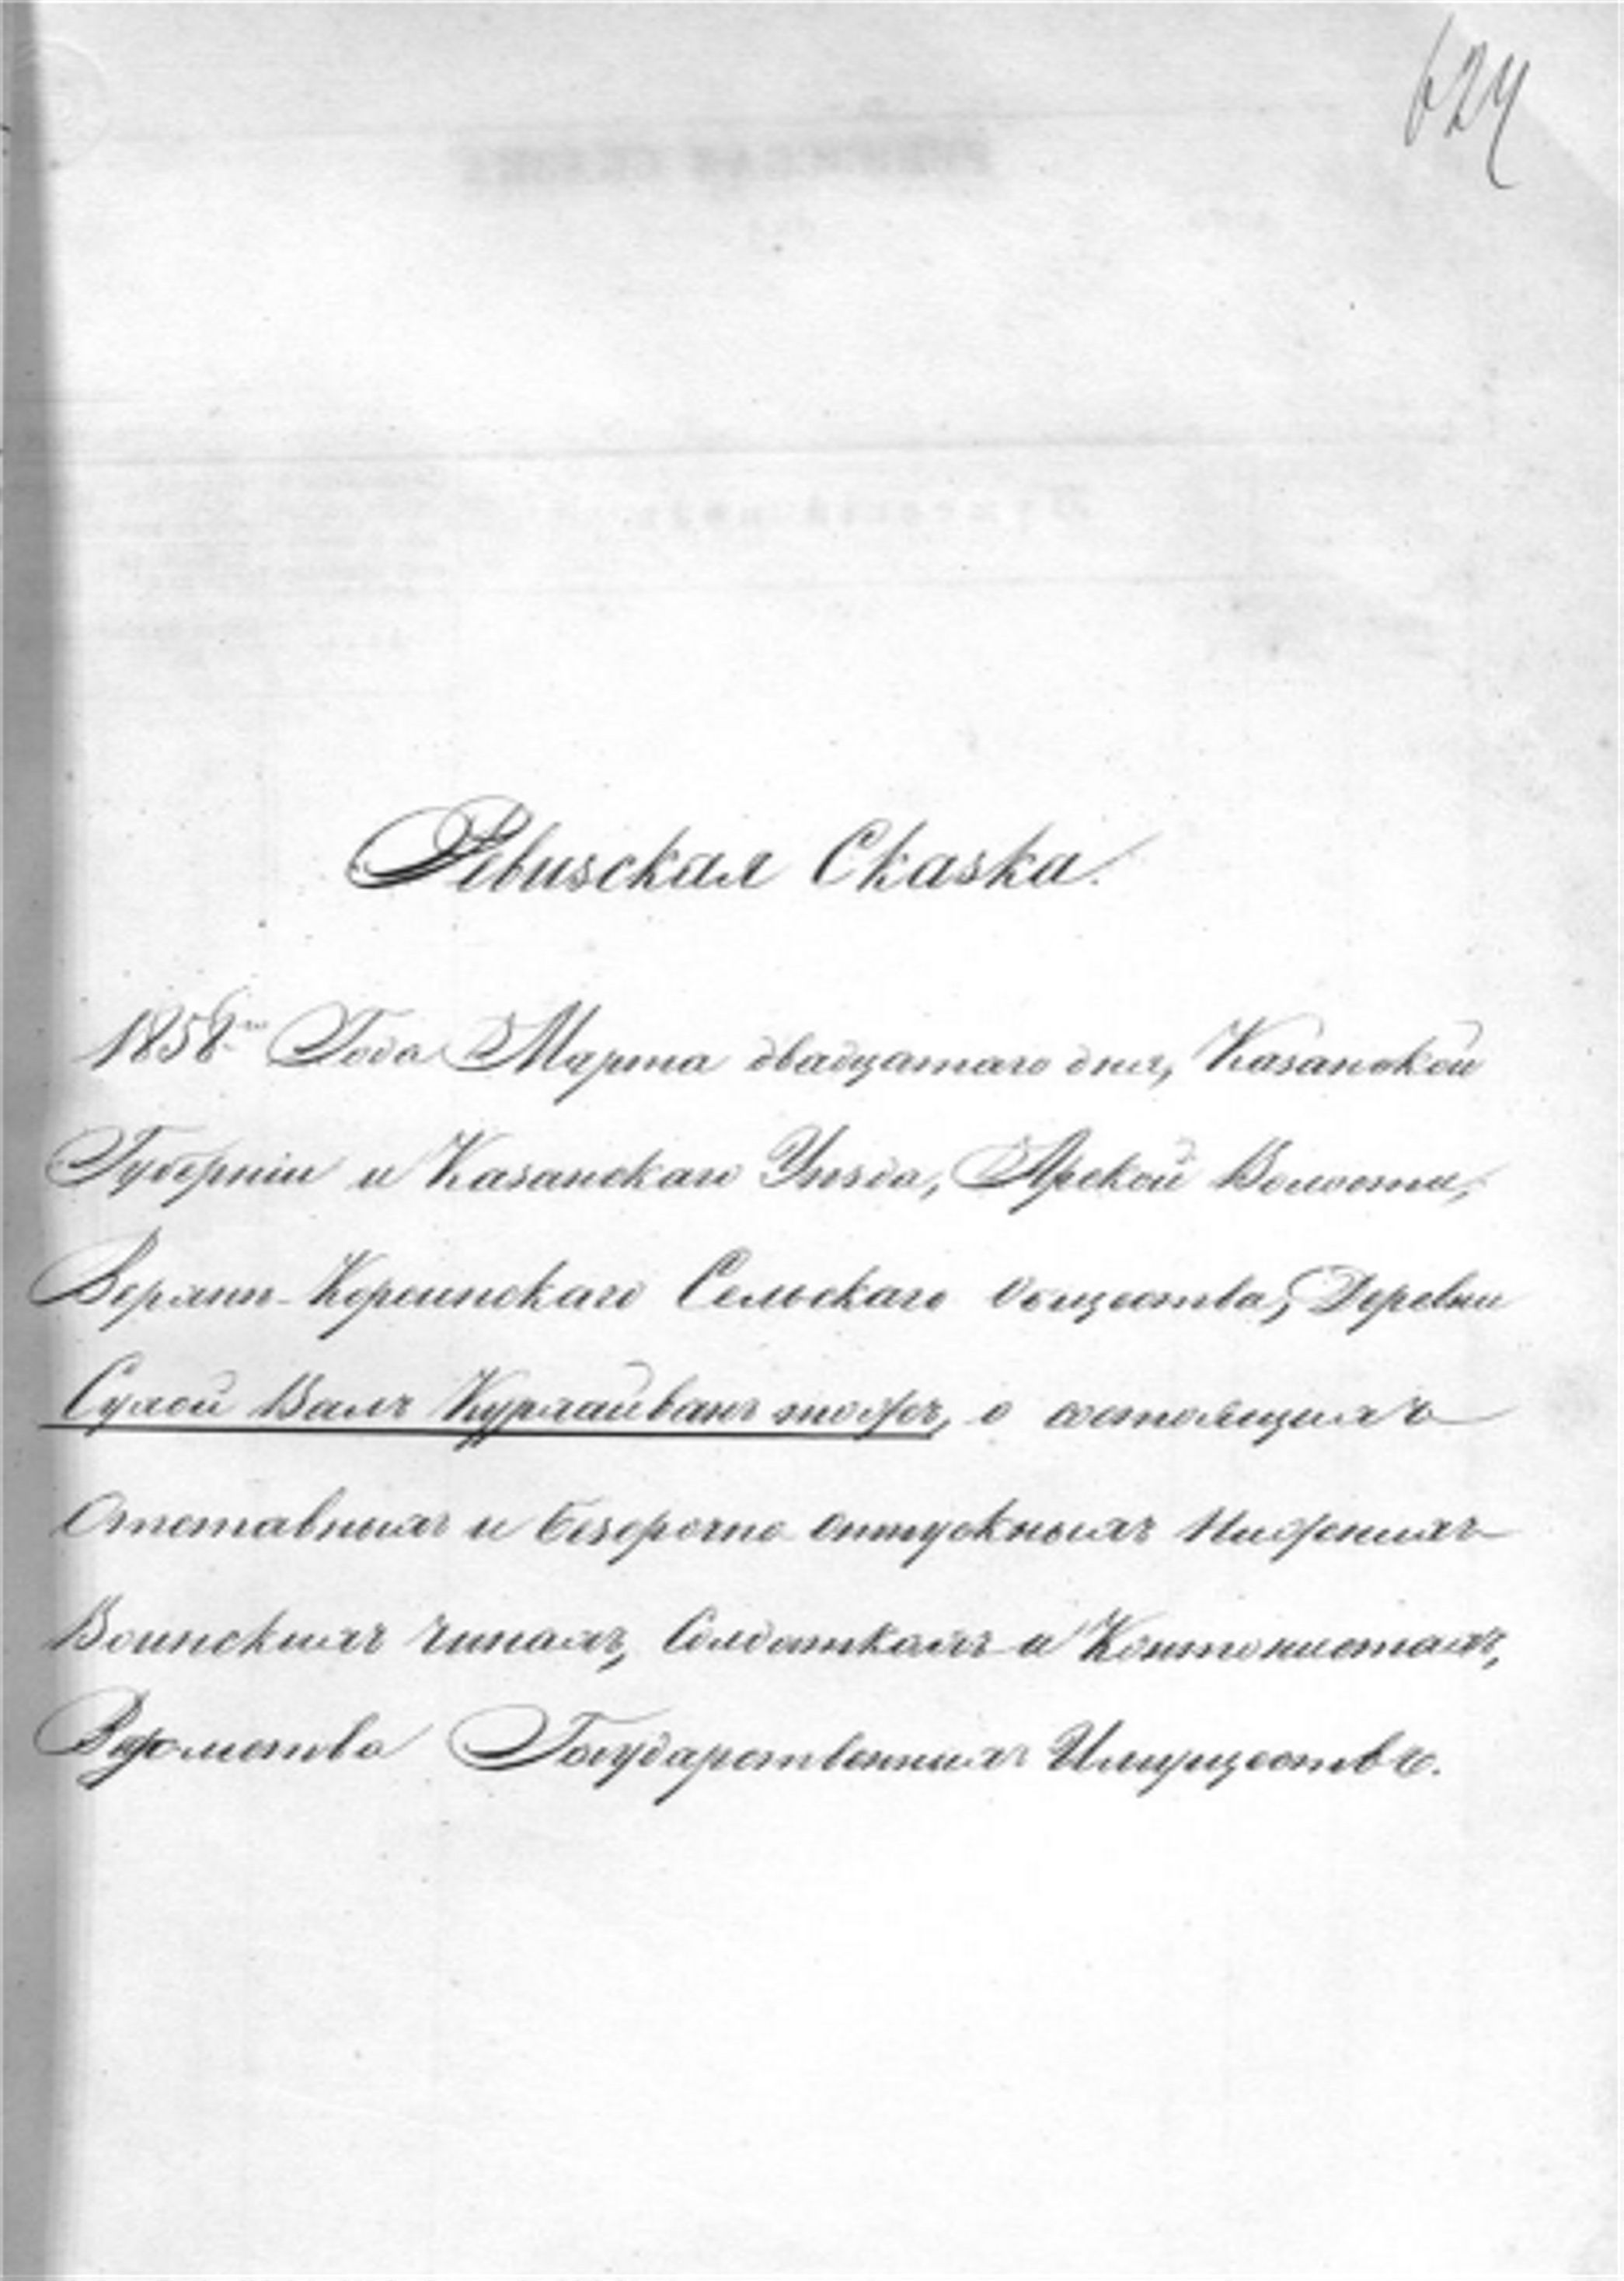 624
Ревизская Сказка.
1858го Года Марта двадцатаго дня, Казанской
Губерніи и Казанскаго Уезда, Арской Волости,
Верхне-Корсинскаго Сельскаго Общества, Деревни
Сухой Валъ Курхайванъ тожъ, о состоящихъ
Отставныхъ и безсрочно отпускныхъ Нижнихъ
Воинскихъ чинахъ, Солдаткахъ и Кантонистахъ,
Ведомства Государственныхъ Имуществъ.